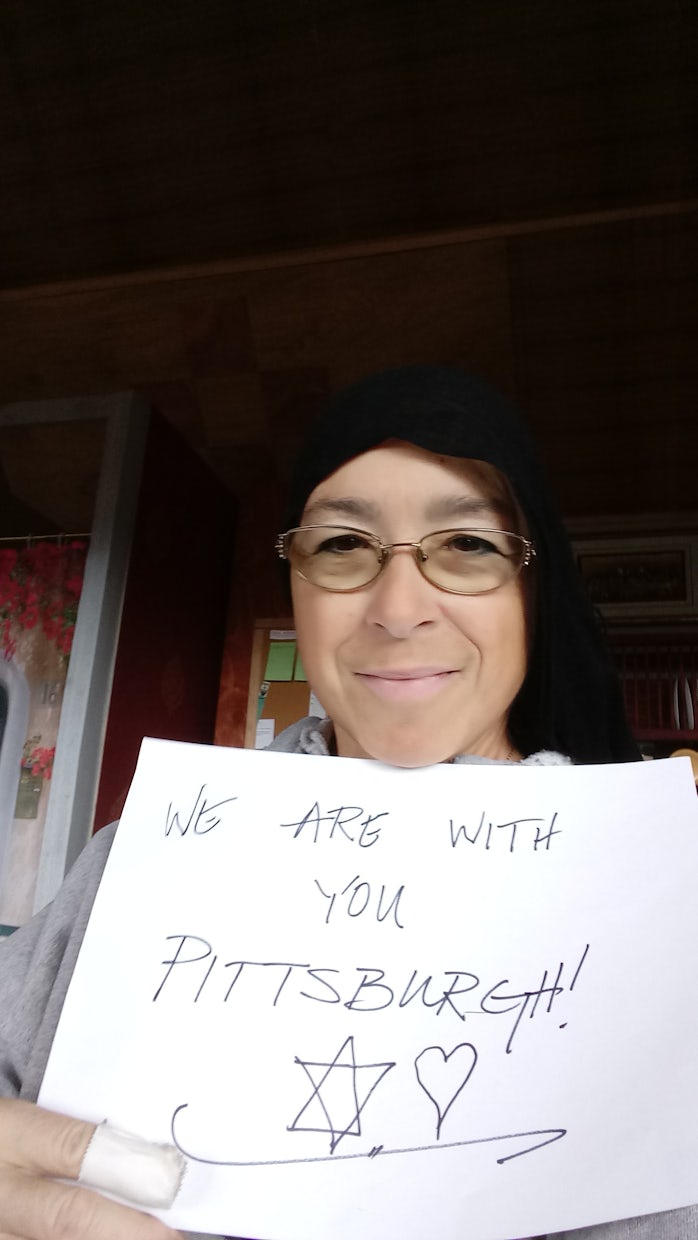 WE ARE WITH
YOU
PITTSBURGH!